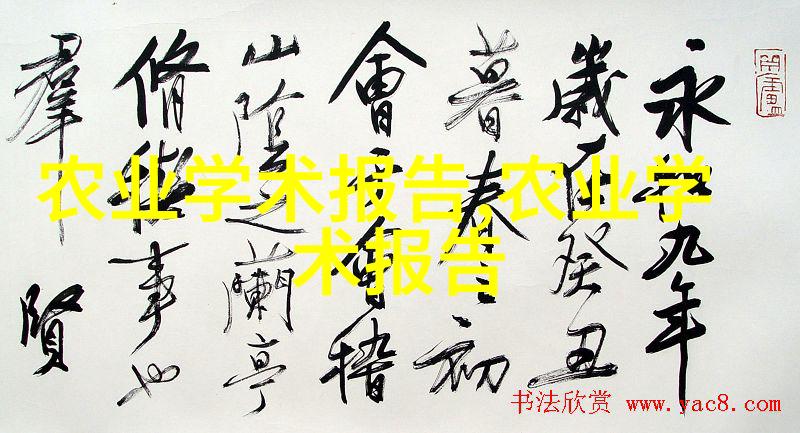 永和九年
歲在癸丑
暮春之初
會于會稽
山陰之蘭亭
脩禊事也
羣賢
农业学术报告,农业学
术报告
书法欣赏 www.yac8.com